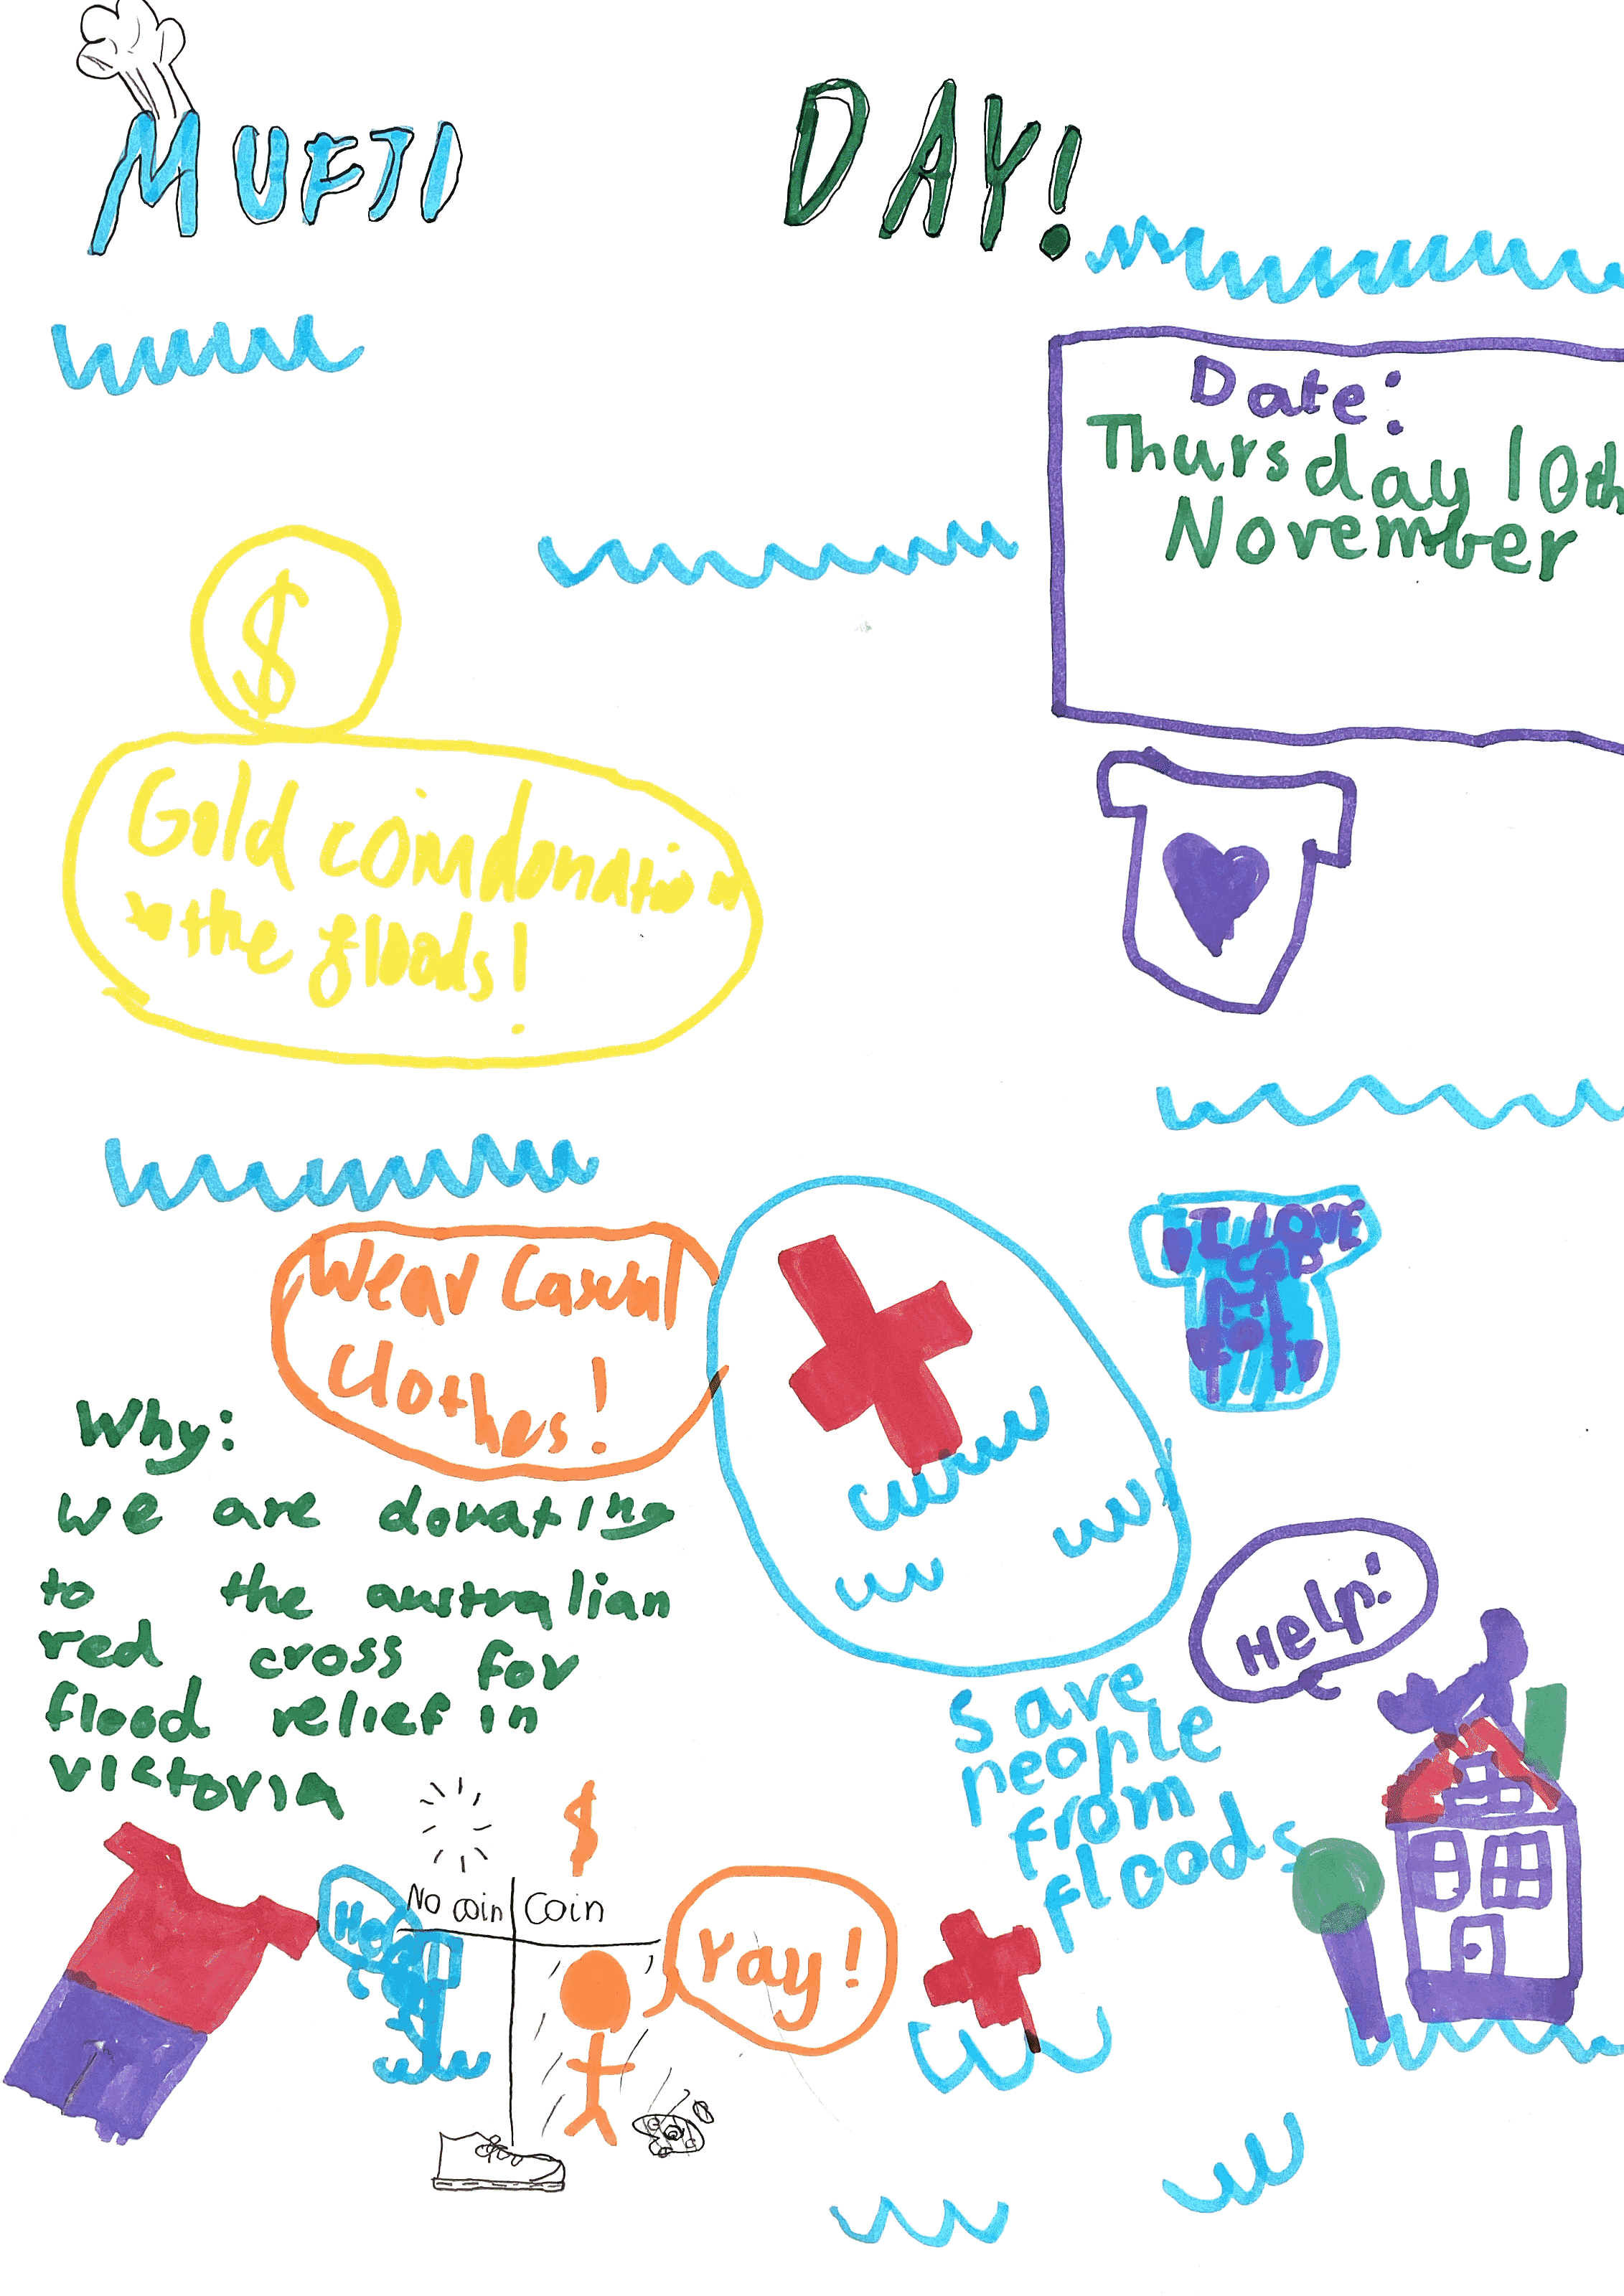 MUFTI DAY!
Date:
Thursday 10th
November
$
Gold coin donation
to the floods!
Wear Casual
Clothes!
I LOVE
Why:
we are donating
to the australian
red cross for
flood relief in
victoria
Help!
Save
people
from
floods
$
No coin Coin
Help
Yay!